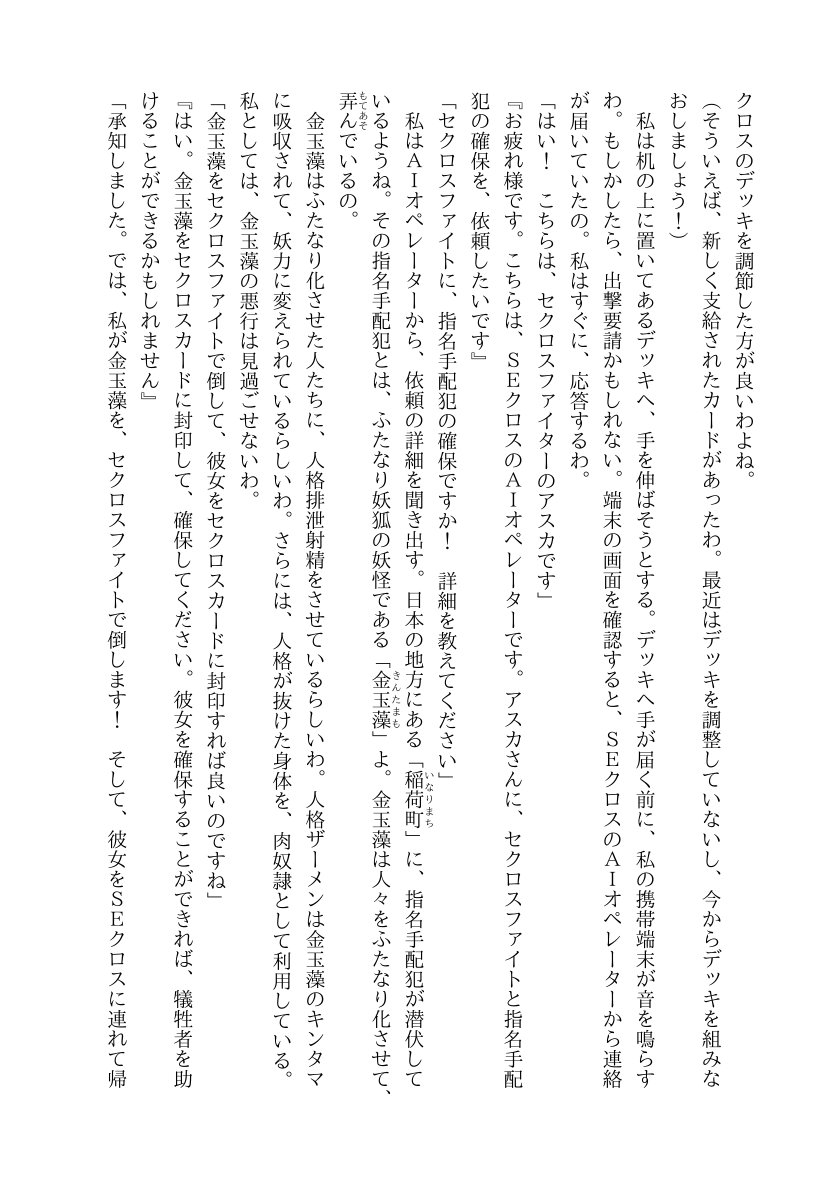 クロスのデッキを調節した方が良いわよね。
（そういえば、新しく支給されたカードがあったわ。最近はデッキを調整していないし、今からデッキを組みな
おしましょう！）
　私は机の上に置いてあるデッキへ、手を伸ばそうとする。デッキへ手が届く前に、私の携帯端末が音を鳴らす
わ。もしかしたら、出撃要請かもしれない。端末の画面を確認すると、ＳＥクロスのＡＩオペレーターから連絡
が届いていたの。私はすぐに、応答するわ。
「はい！　こちらは、セクロスファイターのアスカです」
『お疲れ様です。こちらは、ＳＥクロスのＡＩオペレーターです。アスカさんに、セクロスファイトと指名手配
犯の確保を、依頼したいです』
「セクロスファイトに、指名手配犯の確保ですか！　詳細を教えてください」
　私はＡＩオペレーターから、依頼の詳細を聞き出す。日本の地方にある「稲荷町」に、指名手配犯が潜伏して
いなりまち
いるようね。その指名手配犯とは、ふたなり妖狐の妖怪である「金玉藻」よ。金玉藻は人々をふたなり化させて、
きんたまも
弄んでいるの。
もてあそ
　金玉藻はふたなり化させた人たちに、人格排泄射精をさせているらしいわ。人格ザーメンは金玉藻のキンタマ
に吸収されて、妖力に変えられているらしいわ。さらには、人格が抜けた身体を、肉奴隷として利用している。
私としては、金玉藻の悪行は見過ごせないわ。
「金玉藻をセクロスファイトで倒して、彼女をセクロスカードに封印すれば良いのですね」
『はい。金玉藻をセクロスカードに封印して、確保してください。彼女を確保することができれば、犠牲者を助
けることができるかもしれません』
「承知しました。では、私が金玉藻を、セクロスファイトで倒します！　そして、彼女をＳＥクロスに連れて帰